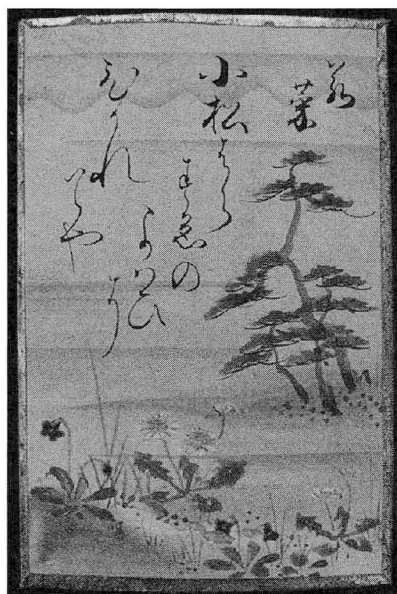 若菜
小松はら
すゑの
よはひ
に
ひかれ
てや